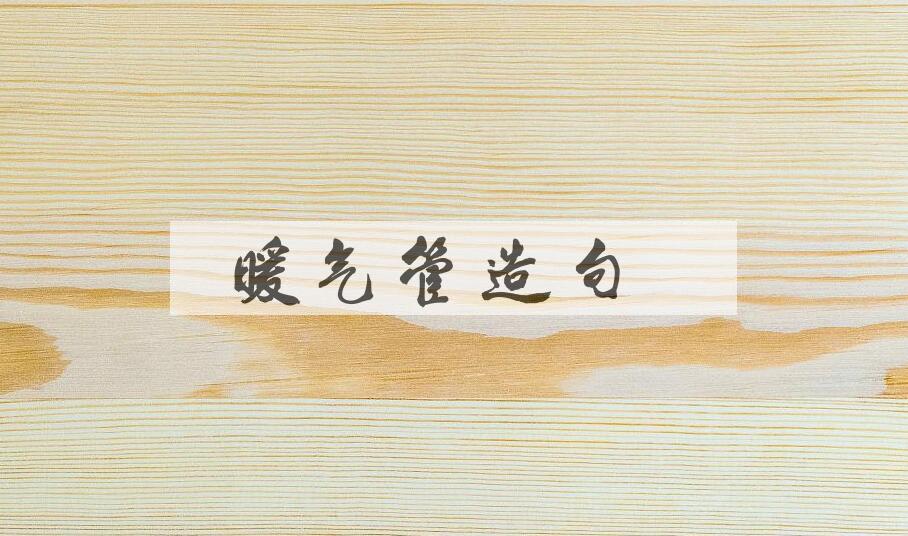 暖气管造句